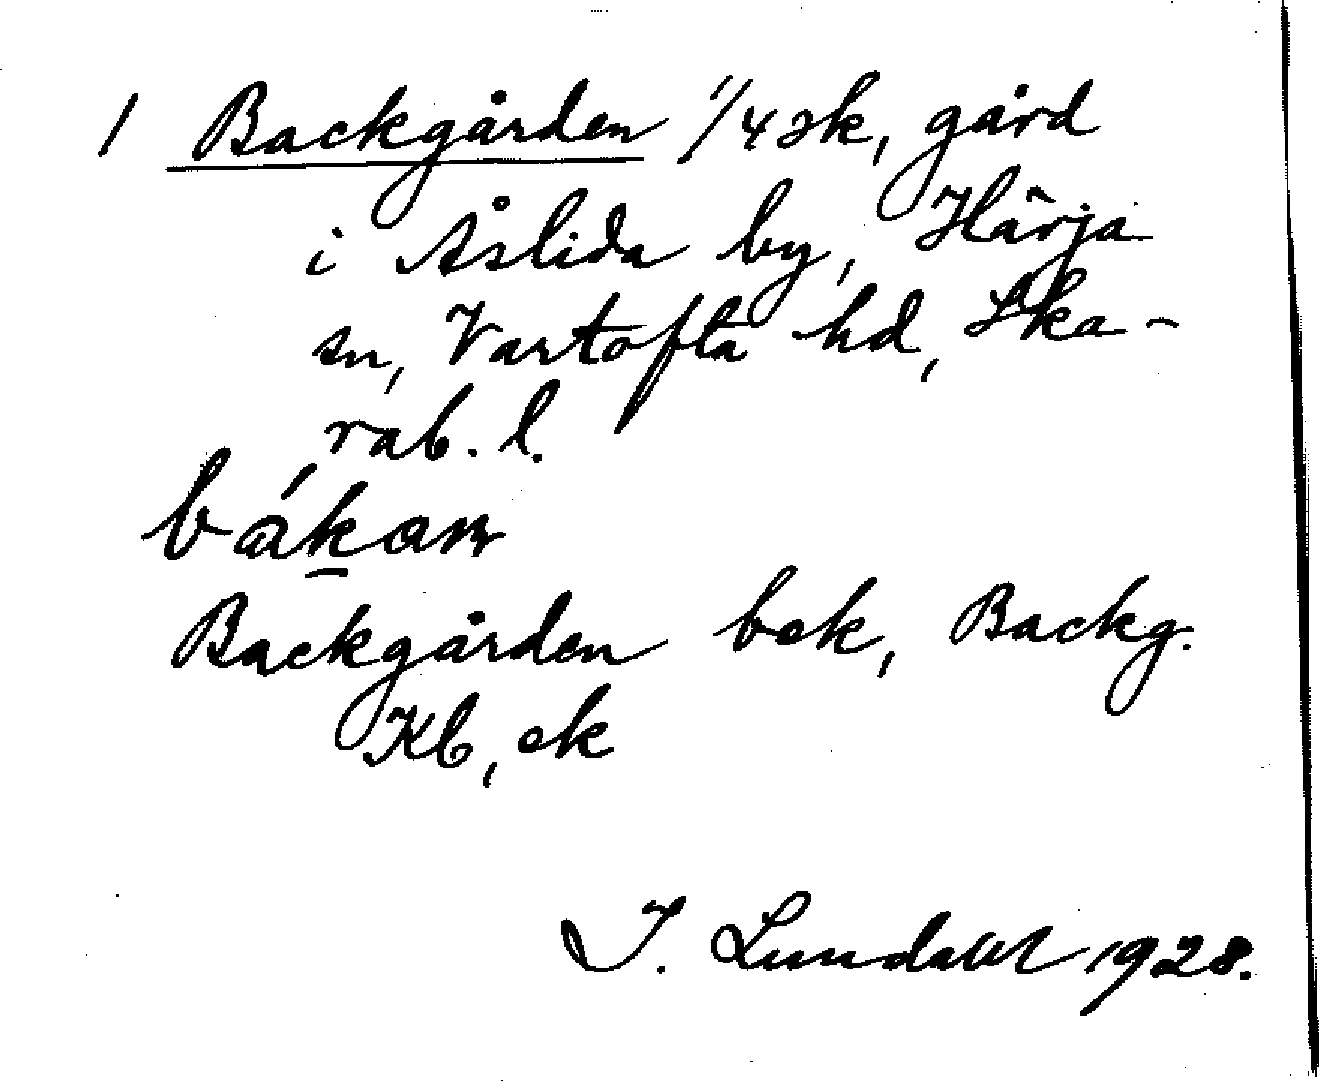 1 Backgården 1/4 sk, gård
i Åslida by, Härja
sn, Vartofta hd, Ska-
rab. l.
bákan
Backgården bok, Backg.
Kb, ek
I. Lundahl 1928.